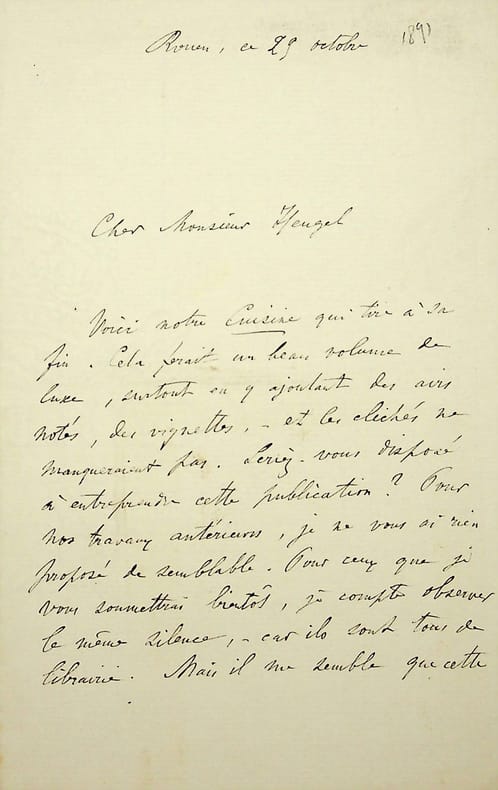 Rouen, ce 29 octobre 1891
Cher Monsieur Heugel
Voici notre Cuisine qui tire à sa
fin. Cela ferait un beau volume de
luxe, surtout en y ajoutant des airs
notés, des vignettes, - et les clichés ne
manqueraient pas. Seriez-vous disposé
à entreprendre cette publication? Pour
nos travaux antérieurs, je ne vous ai rien
proposé de semblable. Pour ceux que je
vous soumettrai bientôt, je compte observer
le même silence, - car ils sont tous de
librairie. Mais il me semble que cette